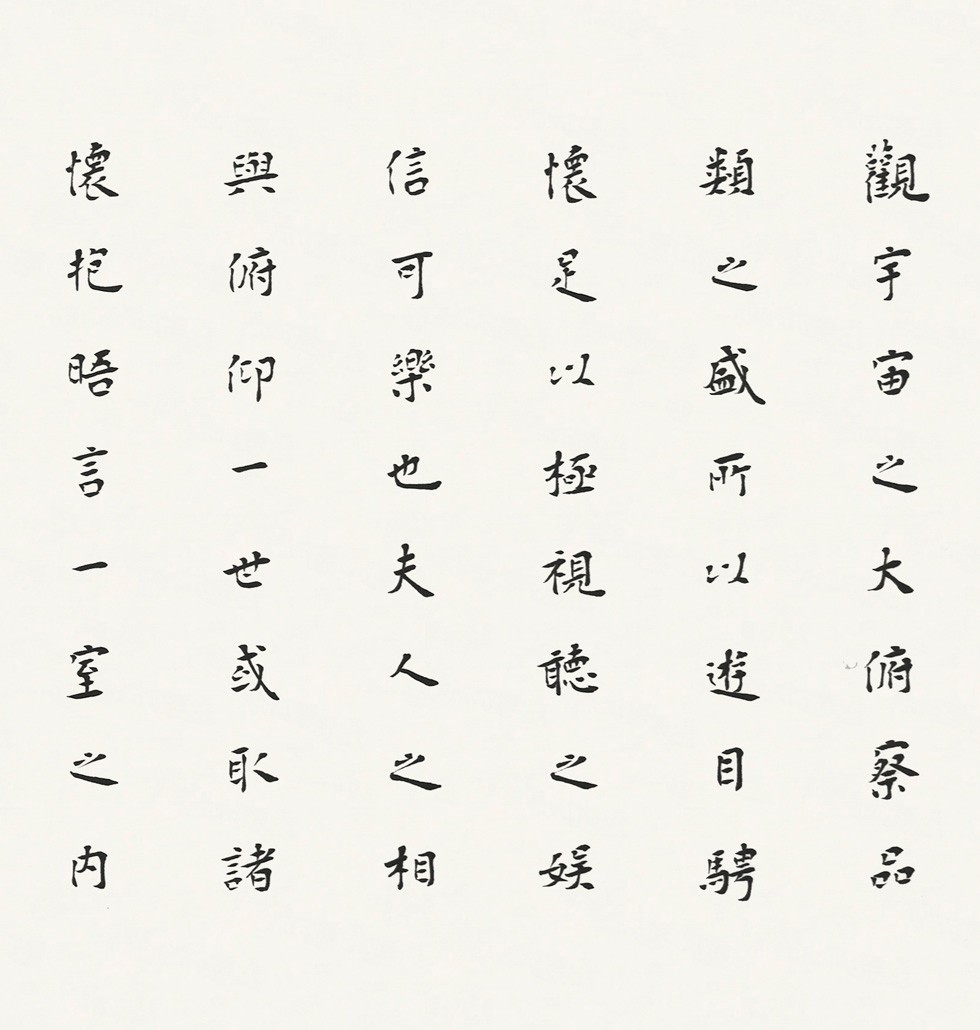 觀宇宙之大俯察品
類之盛所以遊目騁
懷足以極視聽之娛
信可樂也夫人之相
與俯仰一世或取諸
懷抱晤言一室之内